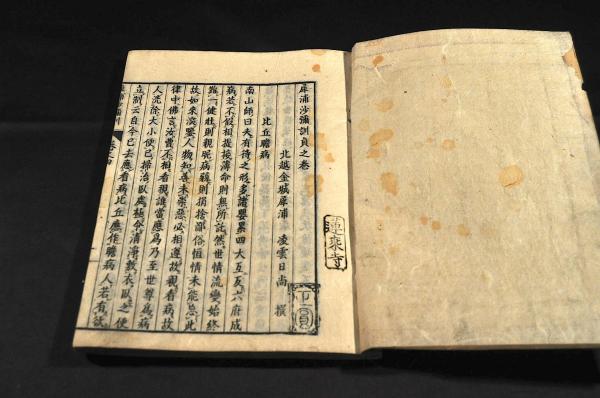 犀浦沙彌訓貞之卷
北越金城犀浦 凌雲日尚 撰
比丘瞻病
南山師曰夫有待之形多諸嬰累四大互反六府成
病若不假相提接薄命則無所託然世情流變始終
難一健壯則親昵病羸則捐捨鄙俗恒情未能忘此
故如來深鑒人物知善未崇惡必相遵故親看病故
律中佛言汝曹不相看視誰當應為乃至世尊為病
人洗除大小便已掃治臥處極令清淨敷衣臥之便
立制云自今已去應看病比丘應作瞻病人若有欲
蓮乘寺